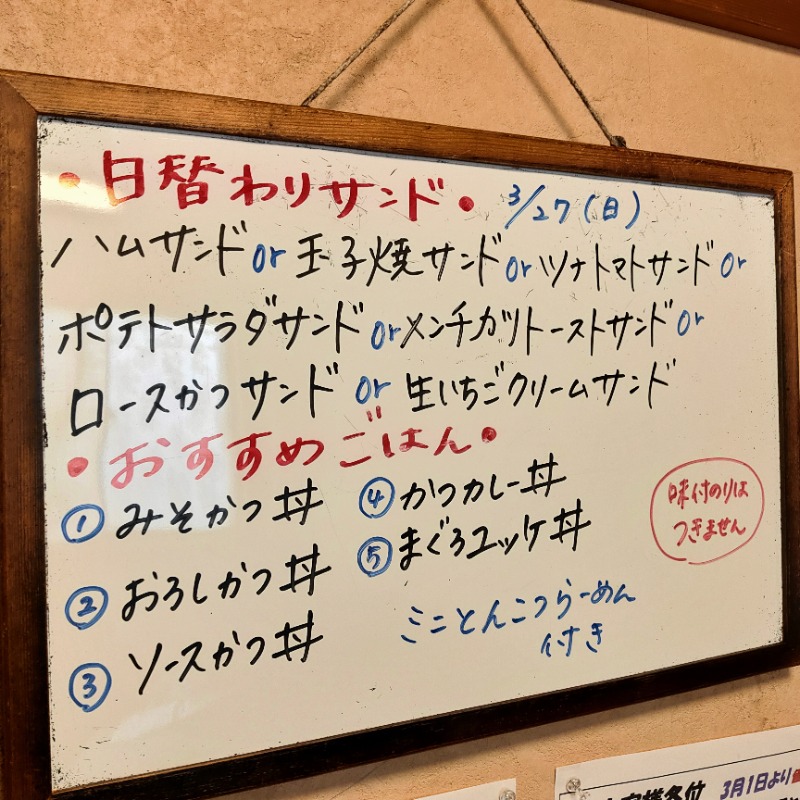 ・日替わりサンド・ 3/27(日)
ハムサンド or 玉子焼サンド or ツナトマトサンド or
ポテトサラダサンド or メンチカツトーストサンド or
ロースかつサンド or 生いちごクリームサンド
・おすすめごはん・
① みそかつ丼
② おろしかつ丼
③ ソースかつ丼
④ かつカレー丼
⑤ まぐろユッケ丼
ミニとんこつらーめん
付き
味付のりは
つきません
3月1日より